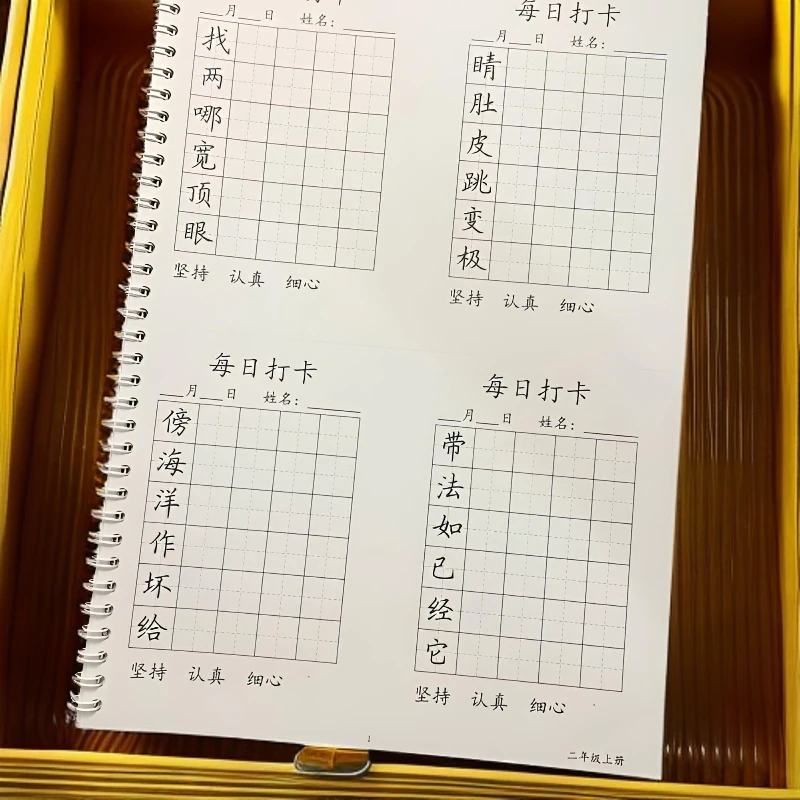 月 日 姓名：
找
两
哪
宽
顶
眼
坚持 认真 细心
每日打卡
月 日 姓名：
睛
肚
皮
跳
变
极
坚持 认真 细心
每日打卡
月 日 姓名：
傍
海
洋
作
坏
给
坚持 认真 细心
每日打卡
月 日 姓名：
带
法
如
已
经
它
坚持 认真 细心
1
二年级上册